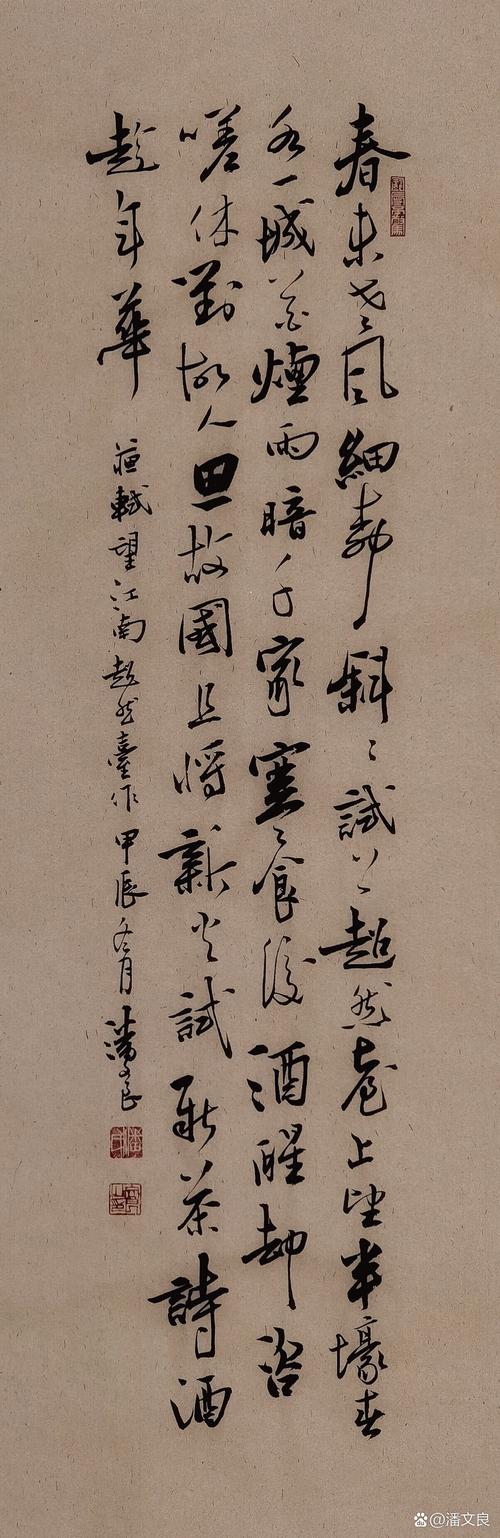 春未老風細柳斜〻試上超然臺上望半壕春
水一城花煙雨暗千家寒食後酒醒却咨
嗟休對故人思故國且將新火試新茶詩酒
趁年華
蘇軾望江南超然臺作甲辰冬月潘文良
@潘文良